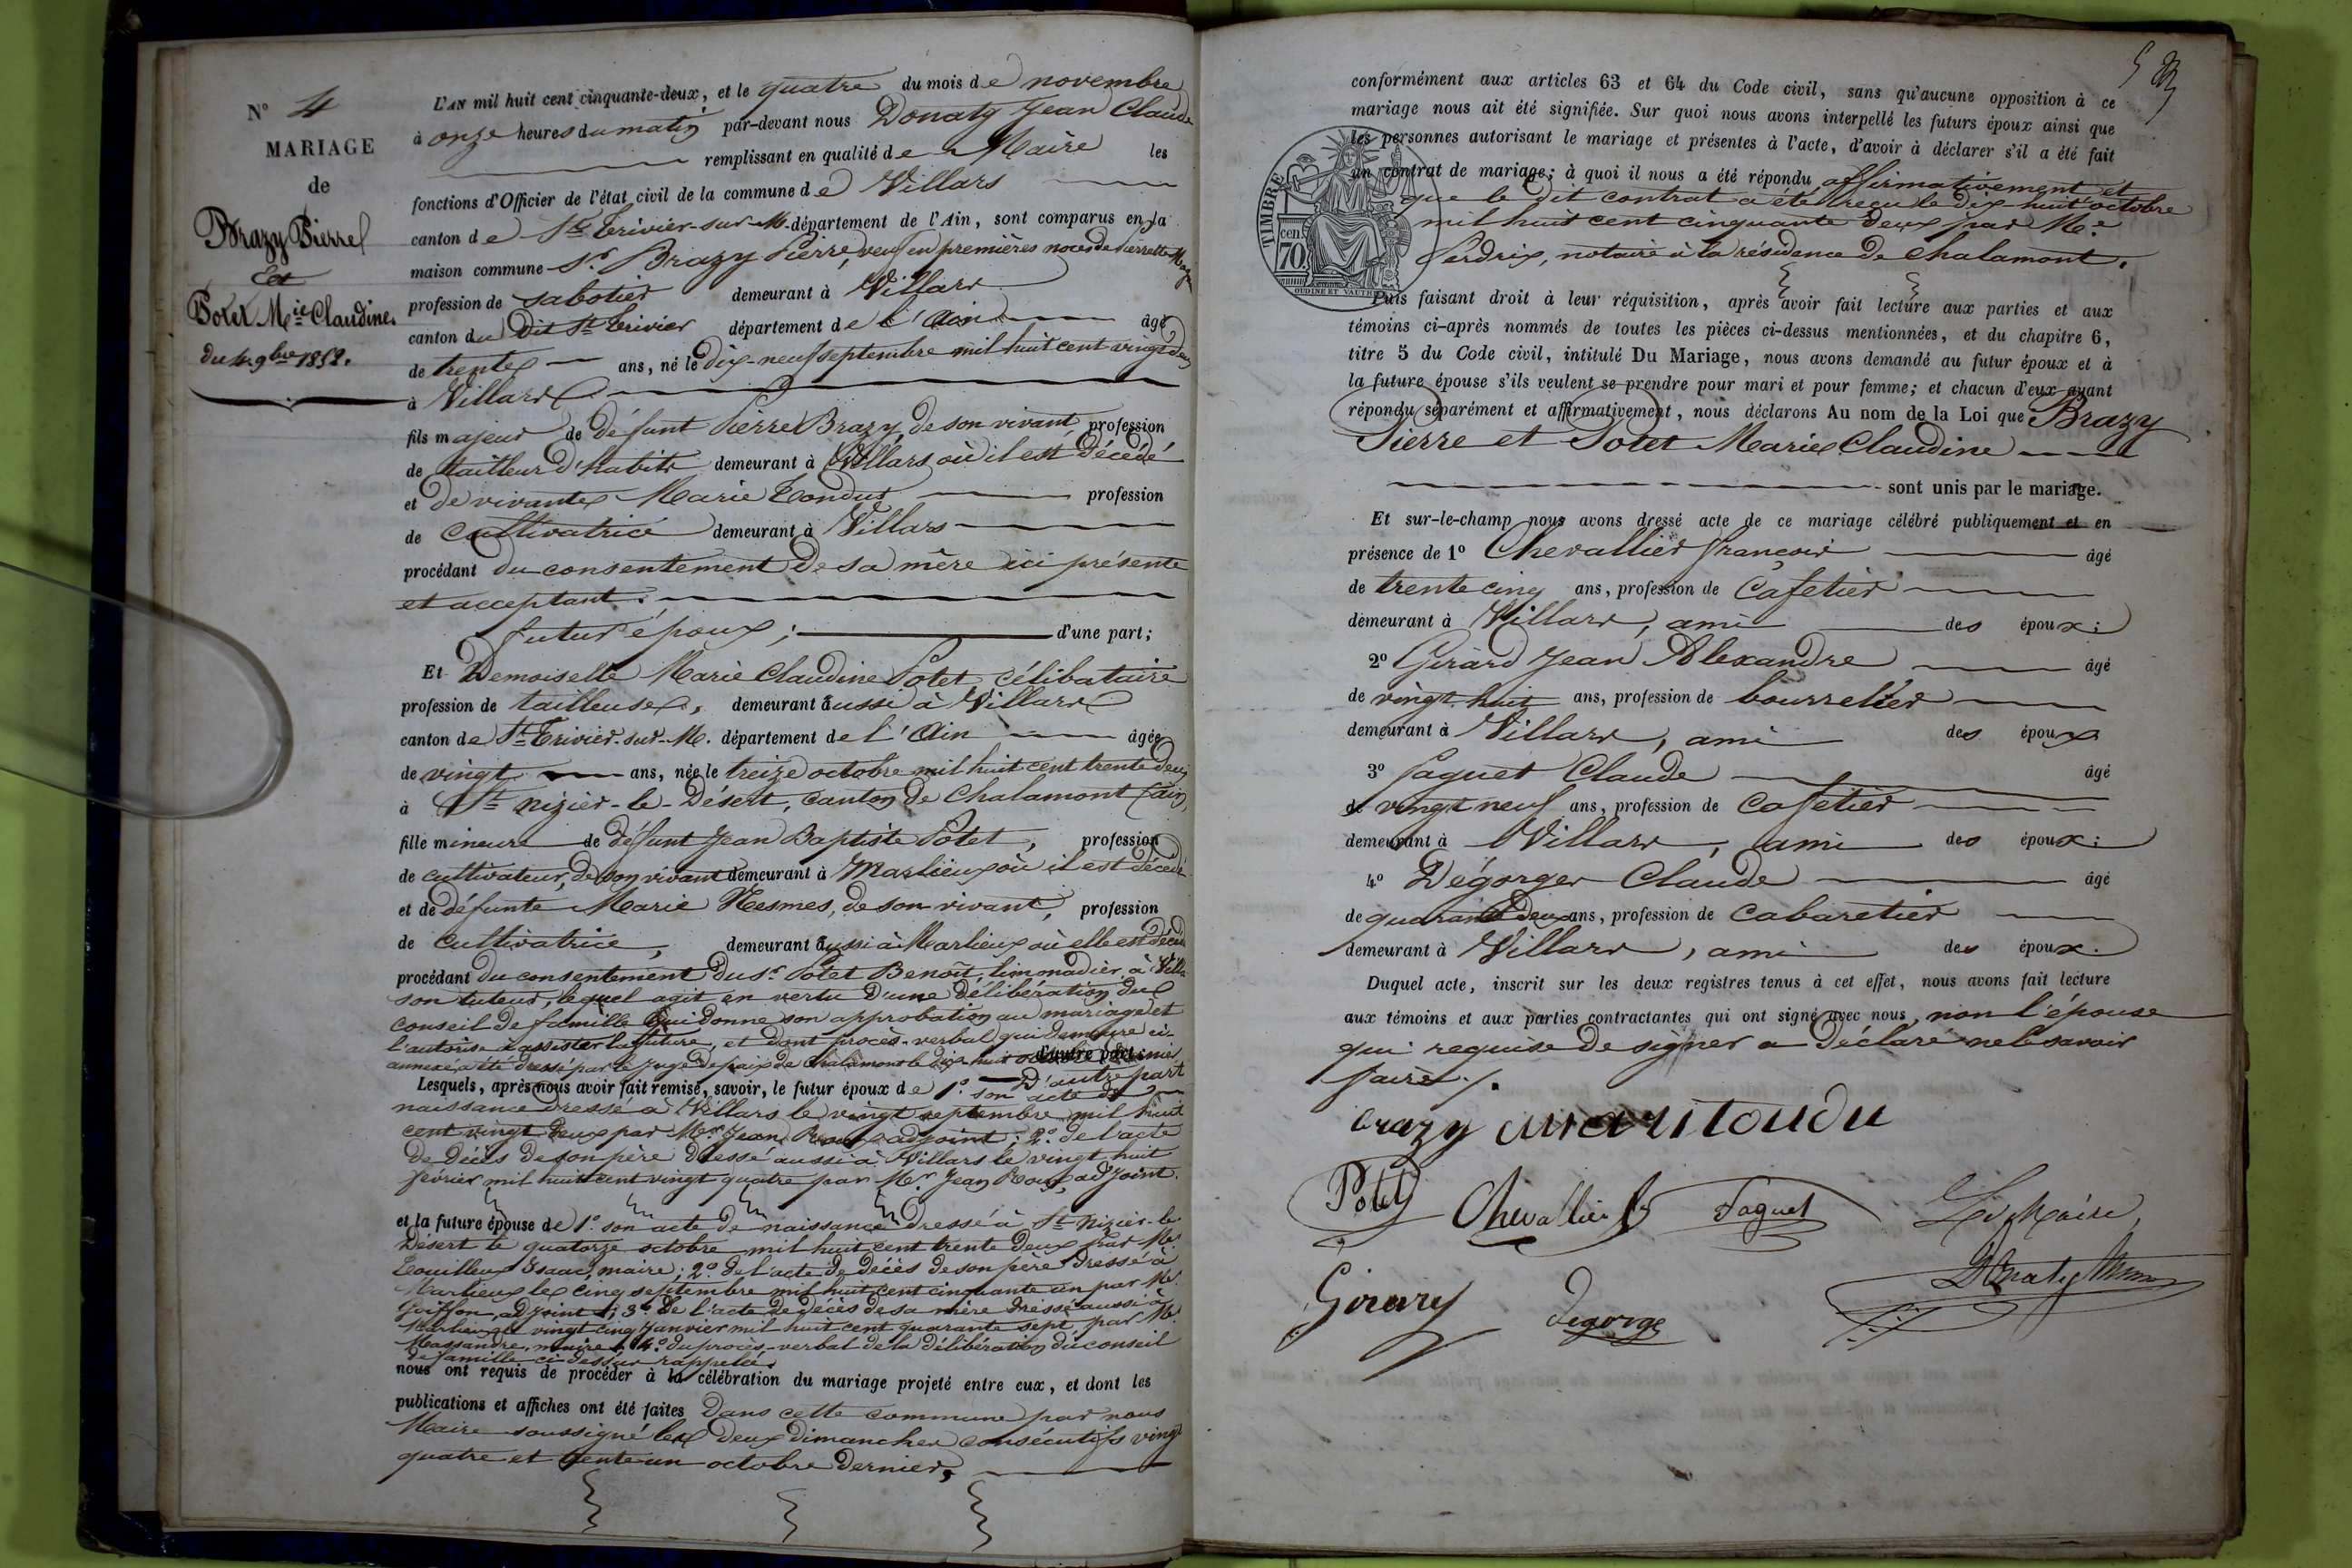 N° 4
MARIAGE
de
Brazy Pierre
Et
Potet Mie Claudine
du 4 9bre 1852.
L'AN mil huit cent cinquante-deux, et le quatre du mois de novembre
à onze heures du matin par-devant nous Donaty Jean Claude
remplissant en qualité de Maire les
fonctions d'Officier de l'état civil de la commune de Villars
canton de St Trivier-sur-M. département de l'Ain, sont comparus en la
maison commune Sr. Brazy Pierre, veuf en premières noces de Pierrette
profession de sabotier demeurant à Villars
canton du dit St Trivier département de l'Ain âgé
de trente ans, né le dix-neuf septembre mil huit cent vingt deux
à Villars
fils majeur de défunt Pierre Brazy, de son vivant profession
de tailleur d'habits demeurant à Villars où il est décédé
et de vivante Marie Tondus profession
de cultivatrice demeurant à Villars
procédant du consentement de sa mère ici présente
et acceptant.
futur époux; d'une part;
Et Demoiselle Marie Claudine Potet célibataire
profession de tailleuse, demeurant aussi à Villars
canton de St Trivier-sur-M. département de l'Ain âgée
de vingt ans, née le treize octobre mil huit cent trente deux
à St nizier-le-Désert, canton de Chalamont (ain)
fille mineure de défunt Jean Baptiste Potet, profession
de cultivateur, de son vivant demeurant à Marlieux où il est décédé
et de défunte Marie Mesmes, de son vivant, profession
de cultivatrice, demeurant aussi à Marlieux où elle est décédé
procédant du consentement du Sr. Potet Benoît, limonadier à Villars
son tuteur, lequel agit en vertu d'une délibération du
conseil de famille qui donne son approbation au mariage et
l'autorise à assister la future, et dont procès-verbal qui demeure ci-
annexé, a été dressé par le Juge de paix de Chalamont le dix huit octobre dernier
d'autre part;
d'autre part
Lesquels, après nous avoir fait remise, savoir, le futur époux de 1° son acte de
naissance dressé à Villars le vingt septembre mil huit
cent vingt deux par Mr. Jean Roux adjoint; 2° de l'acte
de décès de son père dressé aussi à Villars le vingt huit
février mil huit cent vingt quatre par Mr. Jean Roux, adjoint.
et la future épouse de 1° son acte de naissance dressé à St nizier-le
Désert le quatorze octobre mil huit cent trente deux par Mr
Touilleux Isaac, maire; 2° de l'acte de décès de son père dressé à
Marlieux le cinq septembre mil huit cent cinquante un par Mr.
Goiffon, adjoint; 3° de l'acte de décès de sa mère dressé aussi à
Marlieux le vingt cinq Janvier mil huit cent quarante sept par Mr.
Massandre, maire; 4° du procès-verbal de la délibération du conseil
de famille ci-dessus rappelée.
nous ont requis de procéder à la célébration du mariage projeté entre eux, et dont les
publications et affiches ont été faites dans cette commune par nous
Maire soussigné les deux dimanches consécutifs vingt
quatre et trente un octobre dernier,
conformément aux articles 63 et 64 du Code civil, sans qu'aucune opposition à ce
mariage nous ait été signifiée. Sur quoi nous avons interpellé les futurs époux ainsi que
les personnes autorisant le mariage et présentes à l'acte, d'avoir à déclarer s'il a été fait
un contrat de mariage; à quoi il nous a été répondu affirmativement et
que le dit contrat a été reçu le dix-huit octobre
mil huit cent cinquante deux par Me.
Perdrix, notaire à la résidence de Chalamont.
TIMBRE
70 cen.
OUDINE ET VAUTHIER
Puis faisant droit à leur réquisition, après avoir fait lecture aux parties et aux
témoins ci-après nommés de toutes les pièces ci-dessus mentionnées, et du chapitre 6,
titre 5 du Code civil, intitulé Du Mariage, nous avons demandé au futur époux et à
la future épouse s'ils veulent se prendre pour mari et pour femme; et chacun d'eux ayant
répondu séparément et affirmativement, nous déclarons Au nom de la Loi que Brazy
Pierre et Potet Marie Claudine
sont unis par le mariage.
Et sur-le-champ nous avons dressé acte de ce mariage célébré publiquement et en
présence de 1° Chevallier françois âgé
de trente cinq ans, profession de Cafetier
demeurant à Villars, ami des époux;
2° Girard Jean Alexandre âgé
de vingt-huit ans, profession de bourrelier
demeurant à Villars, ami des époux
3° Paquet Claude âgé
de vingt neuf ans, profession de Cafetier
demeurant à Villars, ami des époux;
4° Dégorger Claude âgé
de quarante deux ans, profession de cabaretier
demeurant à Villars, ami des époux.
Duquel acte, inscrit sur les deux registres tenus à cet effet, nous avons fait lecture
aux témoins et aux parties contractantes qui ont signé avec nous, non l'épouse
qui requise de signer a déclaré ne le savoir
faire ./.
brazy mari toudu
Potet Chevallier Faquet Le Maire,
Girard degorge Donaty